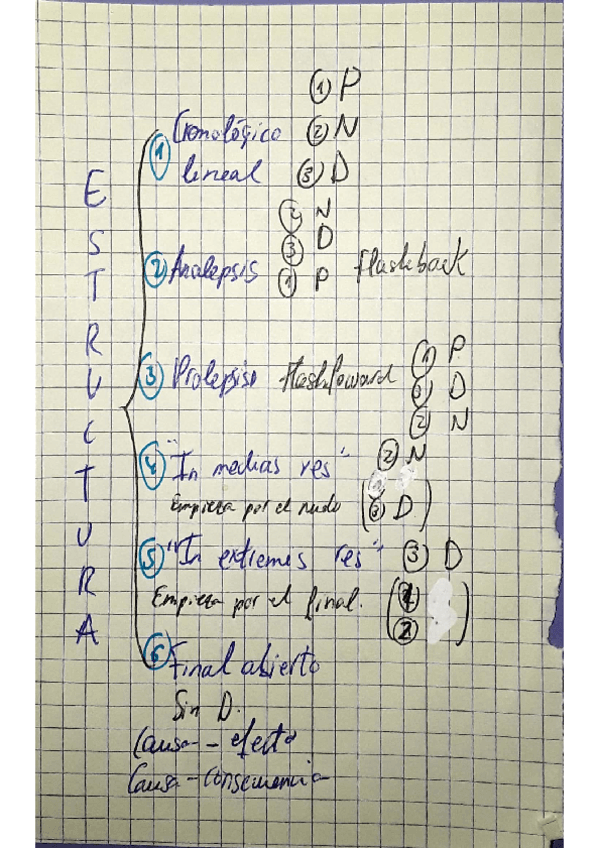 ESTRUCTURA
① P
① Cronológico ② N
lineal ③ D
② N
③ D
② Analepsis ① P flashback
① P
③ Prolepsis o flashfoward ③ D
② N
④ "In medias res" ② N
Empieza por el nudo (③ D)
⑤ "In extremes res" ③ D
Empieza por el final. (① ②)
⑥ Final abierto
Sin D.
Causa - efecto
Causa - consecuencia